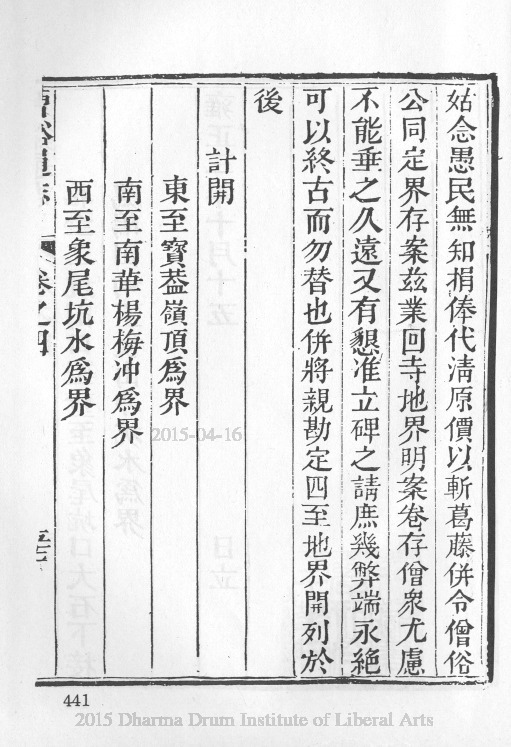 姑念愚民無知捐俸代清原價以斬葛藤併令僧俗
公同定界存案茲業回寺地界明案卷存僧衆尤慮
不能垂之久遠又有懇准立碑之請庶幾弊端永絕
可以終古而勿替也併將親勘定四至地界開列於
後
計開
東至寶葢嶺頂爲界
南至南華楊梅冲爲界
西至象尾坑水爲界
卷之四
441
2015-04-16
2015 Dharma Drum Institute of Liberal Arts